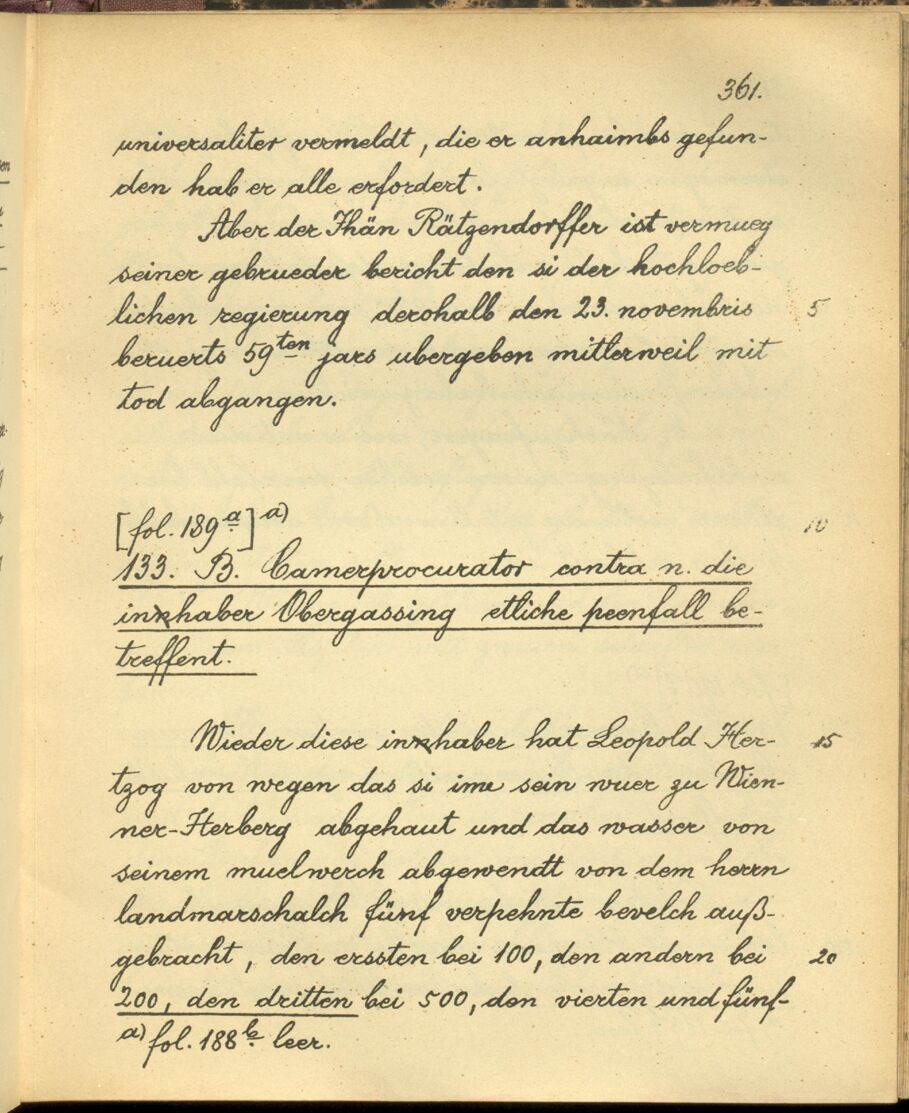 361.
universaliter vermeldt, die er anhaimbs gefun-
den hab er alle erfordert.
Aber der Thän Rätzendorffer ist vermueg
seiner gebrueder bericht den si der hochloeb-
lichen regierung derohalb den 23. novembris 5
beruerts 59ten jars ubergeben mitlerweil mit
tod abgangen.
[fol. 189a] a) 10
133. B. Camerprocurator contra n. die
inhaber Obergassing etliche peenfall be-
treffent.
Wieder diese inhaber hat Leopold Her- 15
tzog von wegen das si ime sein wuer zu Wien-
ner-Herberg abgehaut und das wasser von
seinem muelwerch abgewendt von dem herrn
landmarschalch fünf verpehnte bevelch auß-
gebracht, den erssten bei 100, den andern bei 20
200, den dritten bei 500, den vierten und fünf-
a) fol. 188b leer.